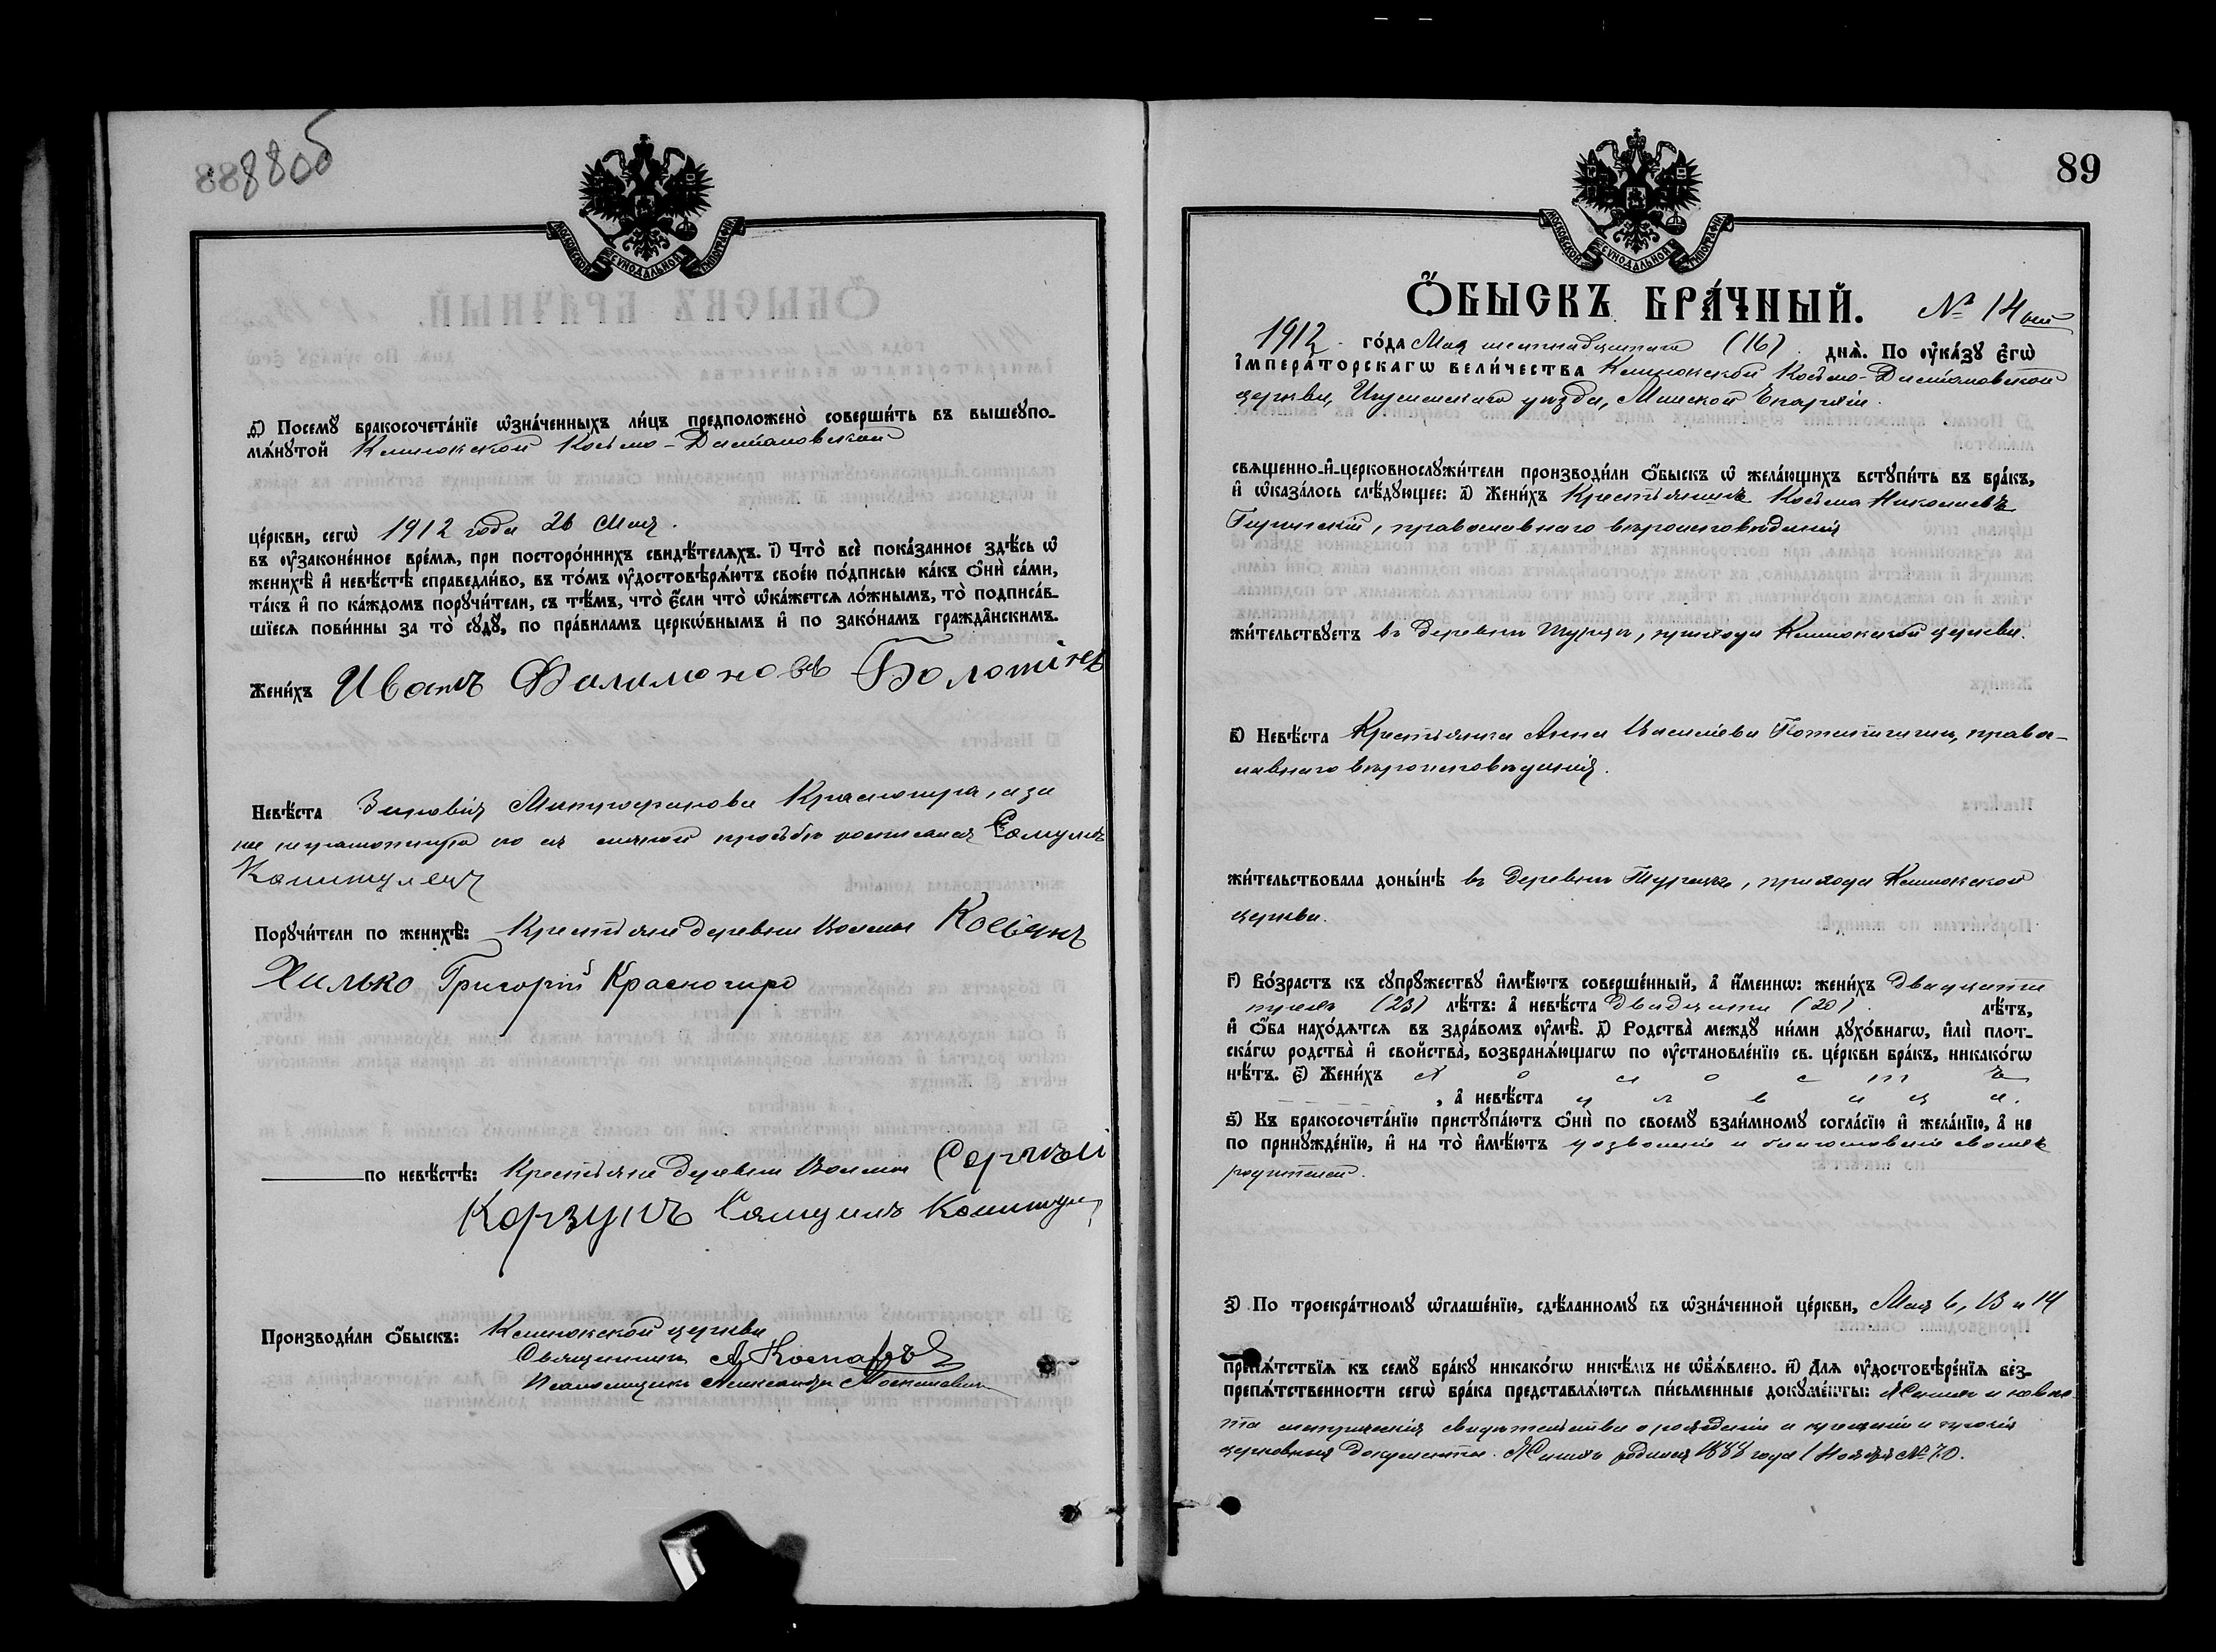 88об
МОСКОВСКОЙ СѴНОДАЛЬНОЙ ТИПОГРАФІИ
д҃) Посемꙋ̀ бракосочета́нїе ѡ҆зна́ченныхъ ли́цъ предположено̀ соверши́ть въ вышеꙋпо-
мѧ́нꙋтой Клинокской Косьмо-Даміановской
це́ркви, сегѡ̀ 1912 года 26 Мая.
въ ᲂу҆законе́нное вре́мѧ, при посторо́ннихъ свидѣ́телѧхъ. і҃) Что̀ всѐ пока́занное здѣ́сь ѡ҆
женихѣ̀ и҆ невѣ́стѣ справедли́во, въ то́мъ ᲂу҆достовѣрѧ́ютъ свое́ю по́дписью ка́къ ѻ҆нѝ са́ми,
та́къ и҆ по ка́ждомъ порꙋчи́тели, съ тѣ́мъ, что̀ є҆́сли что̀ ѡ҆ка́жетсѧ ло́жнымъ, то̀ подписа́в-
шїесѧ пови́нны за то̀ сꙋдꙋ̀, по пра́виламъ церкѡ́внымъ и҆ по зако́намъ гражда̑нскимъ.
Жени́хъ Иванъ Филимоновъ
Невѣ́ста Зиновія Митрофанова Красногира, а за
нее неграмотную по ея личной просьбѣ росписался Самуилъ
Порꙋчи́тели по женихѣ̀: Крестьяне деревни Волмы
Хилько Григорій Красногиръ
по невѣ́стѣ: Крестьяне деревни Волмы Сергѣй
Корзунъ Самуилъ
Производи́ли ѻ҆́быскъ: Клинокской церкви
Священникъ А. Комаръ
Псаломщикъ Александръ
89
МОСКОВСКОЙ СѴНОДАЛЬНОЙ ТИПОГРАФІИ
Ѻ҆́быскъ бра́чный. № 14
1912 го́да Мая шестнадцатаго (16) днѧ̀. По ᲂу҆ка́зꙋ є҆гѡ̀
і҆мпера́торскагѡ вели́чества Клинокской Косьмо-Даміановской
церкви, Игуменскаго уѣзда, Минской Епархіи.
свѧщенно-и҆-церковнослꙋжи́тели производи́ли ѻ҆́быскъ ѡ҆ жела́ющихъ встꙋпи́ть въ бра́къ,
и҆ ѡ҆каза́лось слѣ́дꙋющее: а҃) Жени́хъ Крестьянинъ Косьма Николаевъ
православнаго вѣроисповѣданія
жи́тельствꙋетъ въ деревнѣ Турцѣ, прихода Клинокской церкви.
в҃) Невѣ́ста Крестьянка Анна Васильева правос-
лавнаго вѣроисповѣданія.
жи́тельствовала доны́нѣ въ деревнѣ прихода Клинокской
церкви.
г҃) Во́зрастъ къ сꙋпрꙋ́жествꙋ и҆мѣ́ютъ соверше́нный, а҆ и҆́меннѡ: жени́хъ двадцати
трехъ (23) лѣ́тъ: а҆ невѣ́ста двадцати (20) лѣ́тъ,
и҆ ѻ҆́ба нахо́дѧтсѧ въ здра́вомъ ᲂу҆мѣ̀. д҃) Родства̀ междꙋ̀ ни́ми дꙋхо́внагѡ, и҆лѝ плот-
ска́гѡ родства̀ и҆ свойства̀, возбранѧ́ющагѡ по ᲂу҆становле́нїю св. це́ркви бра́къ, никако́гѡ
нѣ́тъ. є҃) Жени́хъ холостъ
, а҆ невѣ́ста дѣвица.
ѕ҃) Къ бракосочета́нїю пристꙋпа́ютъ ѻ҆нѝ по своемꙋ̀ взаи́мномꙋ согла́сїю и҆ жела́нїю, а҆ не
по принꙋжде́нїю, и҆ на то̀ и҆мѣ́ютъ дозволеніе и благословеніе своихъ
родителей.
з҃) По троекра́тномꙋ ѡ҆глаше́нїю, сдѣ́ланномꙋ въ ѡ҆зна́ченной це́ркви, Мая 6, 13 и 14
препѧ́тствїѧ къ семꙋ̀ бра́кꙋ никако́гѡ никѣ́мъ не ѡ҆б̾ѧ́влено. и҃) Длѧ ᲂу҆достовѣре́нїѧ без-
препѧ́тственности сегѡ̀ бра́ка представлѧ́ютсѧ пи́сьменные докꙋме́нты: Жениха и невѣс-
та метрическія свидѣтельства о рожденіи и крещеніи и прочія
церковные документы. Женихъ родился 1888 года 1 Ноября № 70.